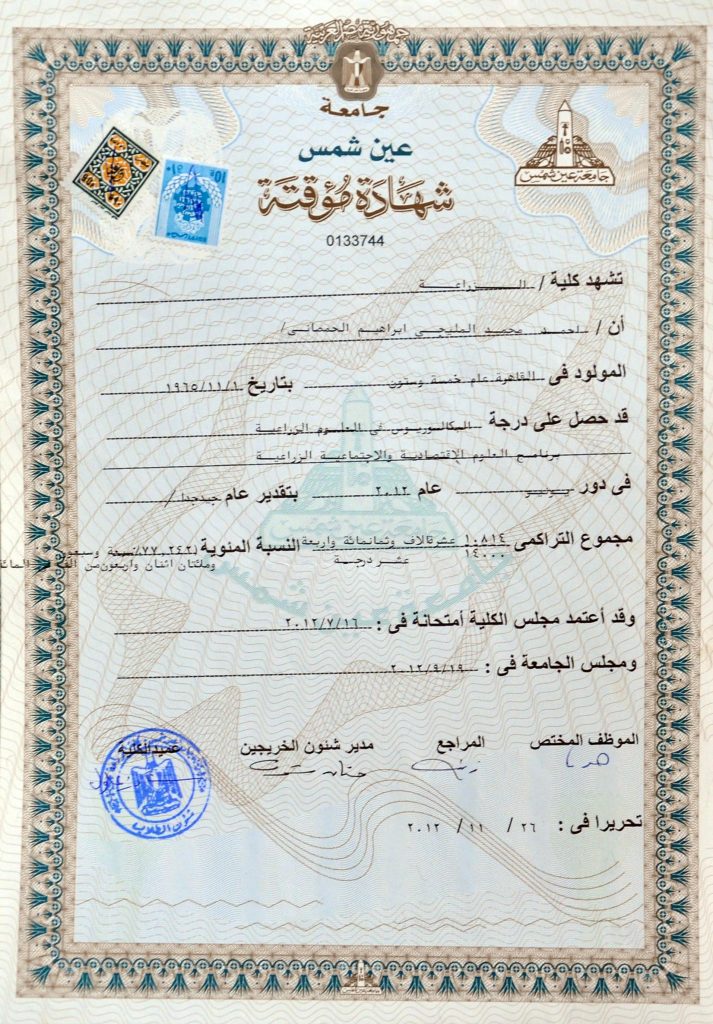 جمهورية مصر العربية
جامعة
عين شمس
جامعة عين شمس
شهادة مؤقتة
0133744
تشهد كلية / الـــزراعــة
أن / احمد محمد المليجى ابراهيم /
المولود فى القاهرة عام خمسة وستون بتاريخ ١٩٦٥/١١/١
قد حصل على درجة البكالوريوس فى العلوم الزراعية
برنامج العلوم الإقتصادية والاجتماعية الزراعية
فى دور يونيو عام ٢٠١٢ بتقدير عام جيدجدا /
مجموع التراكمى ١٠٨١٤ عشرةالاف وثمانمائة واربعة النسبة المئوية (٧٧,٢٤٢٪) سبعة وسبعون
١٤٠٠٠ عشر درجة ومائتان اثنان واربعون من الف فى المائة
وقد أعتمد مجلس الكلية أمتحانة فى : ٢٠١٢/٧/١٦
ومجلس الجامعة فى : ٢٠١٢/٩/١٩
الموظف المختص المراجع مدير شئون الخريجين عميد الكلية
شئون الطلاب
تحريرا فى : ٢٦ / ١١ / ٢٠١٢
جامعة عين شمس